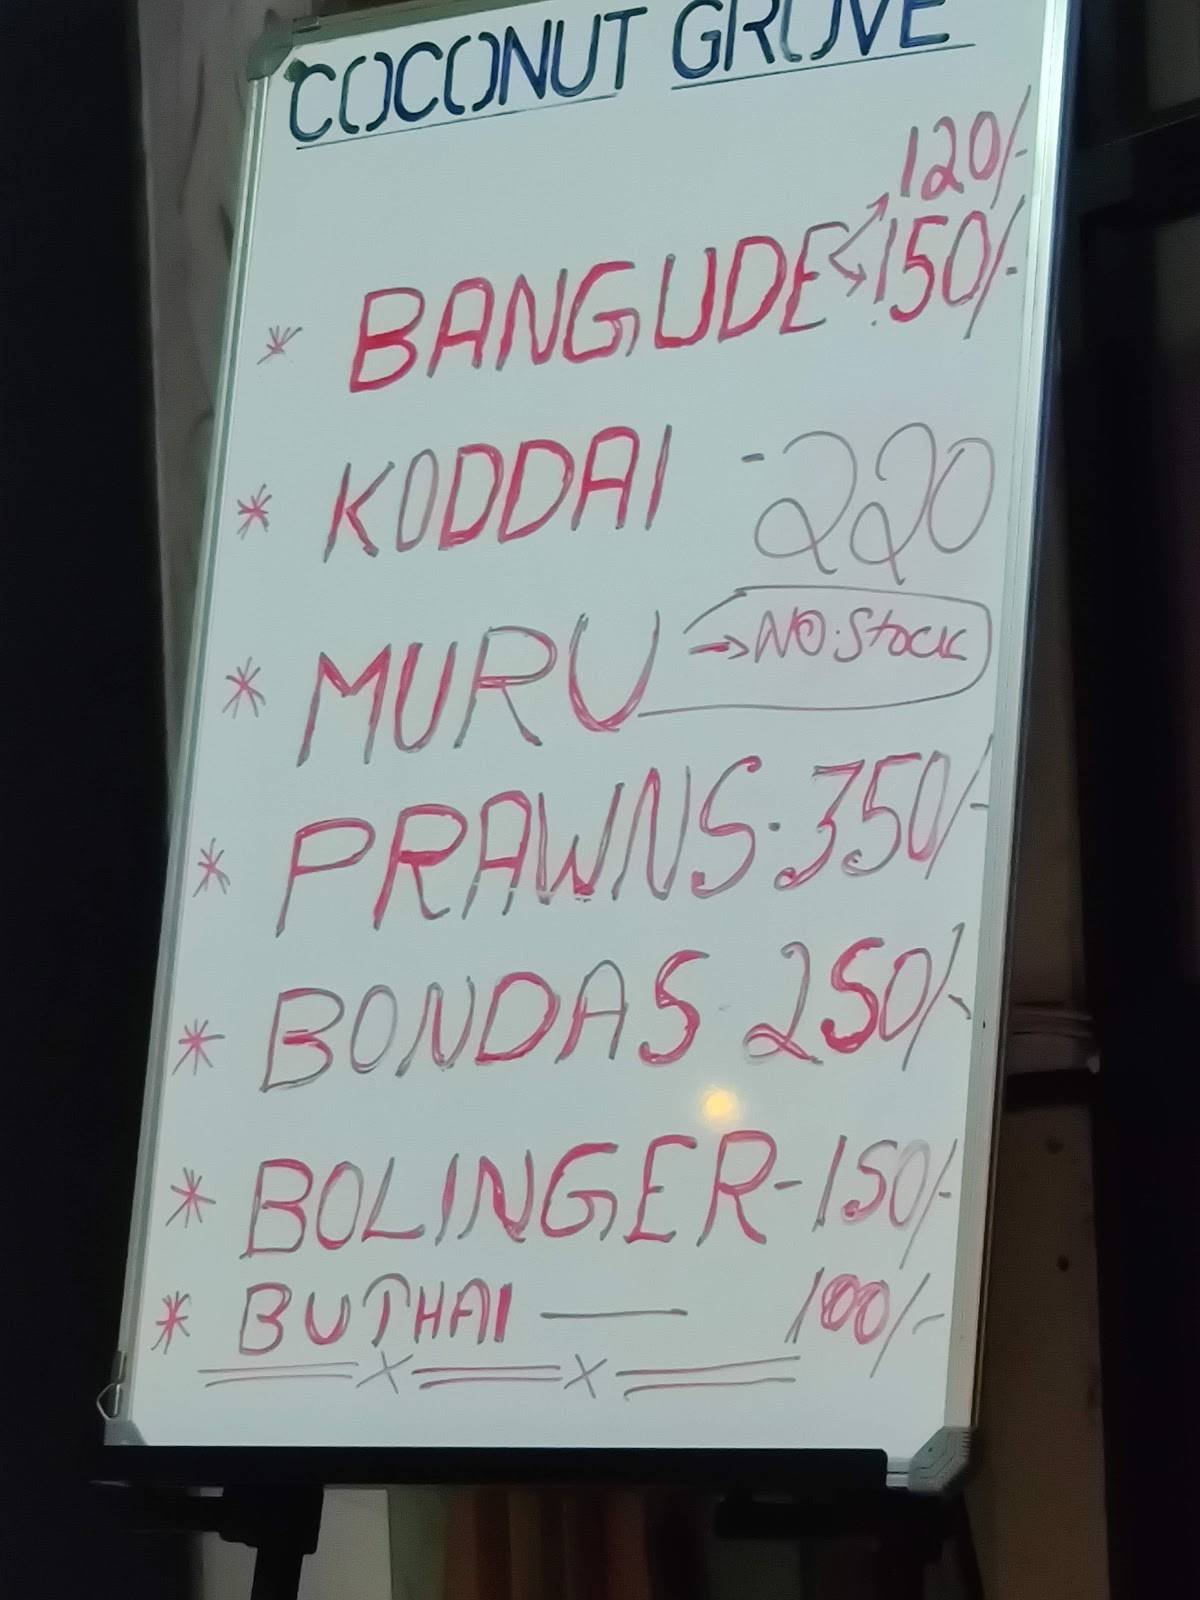 COCONUT GROVE
120/-
* BANGUDE 150/-
* KODDAI - 220
* MURU → NO.Stock
* PRAWNS - 350/-
* BONDAS - 250/-
* BOLINGER - 150/-
* BUTHAI — 100/-